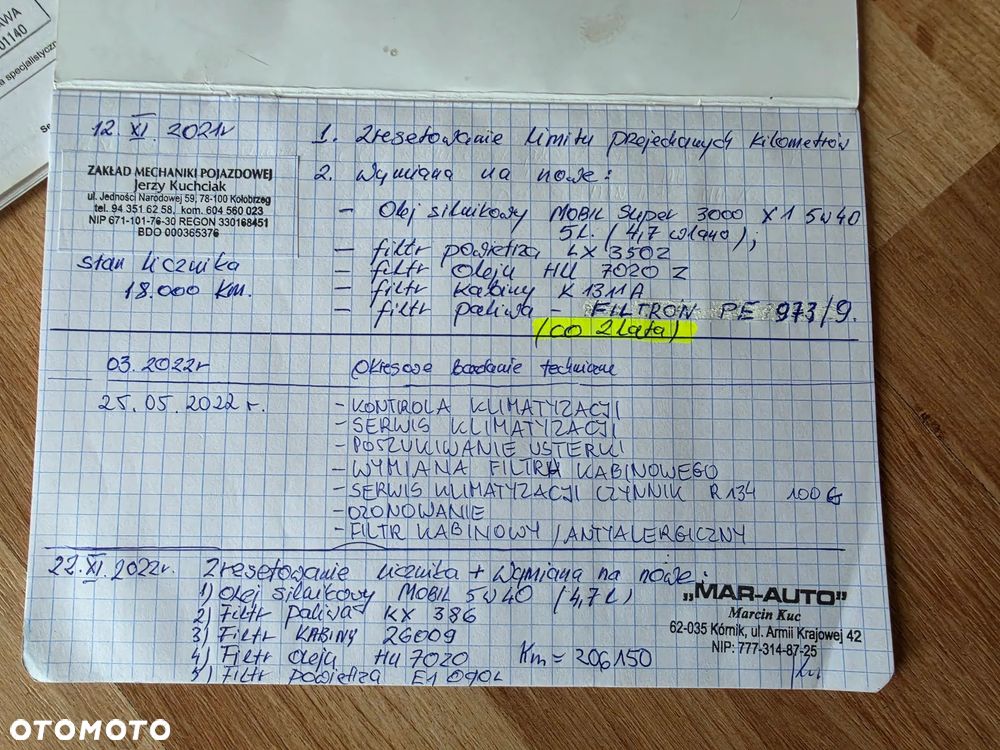 AWA
01140
a specjalistyczn
12. XI. 2021r
1. Zresetowanie limitu przejechanych kilometrów
ZAKŁAD MECHANIKI POJAZDOWEJ
Jerzy Kuchciak
ul. Jedności Narodowej 59, 78-100 Kołobrzeg
tel. 94 351 62 58, kom. 604 560 023
NIP 671-101-76-30 REGON 330168451
BDO 000365376
stan licznika
18.000 km.
2. Wymiana na nowe:
- Olej silnikowy MOBIL Super 3000 X1 5W40
5L. (4,7 wlano);
- filtr powietrza LX 3502
- filtr oleju HU 7020 Z
- filtr kabiny K 1311A
- filtr paliwa - FILTRON PE 973/9.
(co 2 lata)
03. 2022r
Okresowe badanie techniczne
25. 05. 2022 r.
- KONTROLA KLIMATYZACJI
- SERWIS KLIMATYZACJI
- POSZUKIWANIE USTERKI
- WYMIANA FILTRA KABINOWEGO
- SERWIS KLIMATYZACJI CZYNNIK R134 100G
- OZONOWANIE
- FILTR KABINOWY /ANTYALERGICZNY
22. XI. 2022r. Zresetowanie licznika + Wymiana na nowe:
1) Olej silnikowy MOBIL 5W40 (4,7L)
2) Filtr paliwa KX 386
3) Filtr KABINY 26009
4) Filtr oleju HU 7020
5) Filtr powietrza E1090L
Km = 206150
„MAR-AUTO"
Marcin Kuc
62-035 Kórnik, ul. Armii Krajowej 42
NIP: 777-314-87-25
OTOMOTO